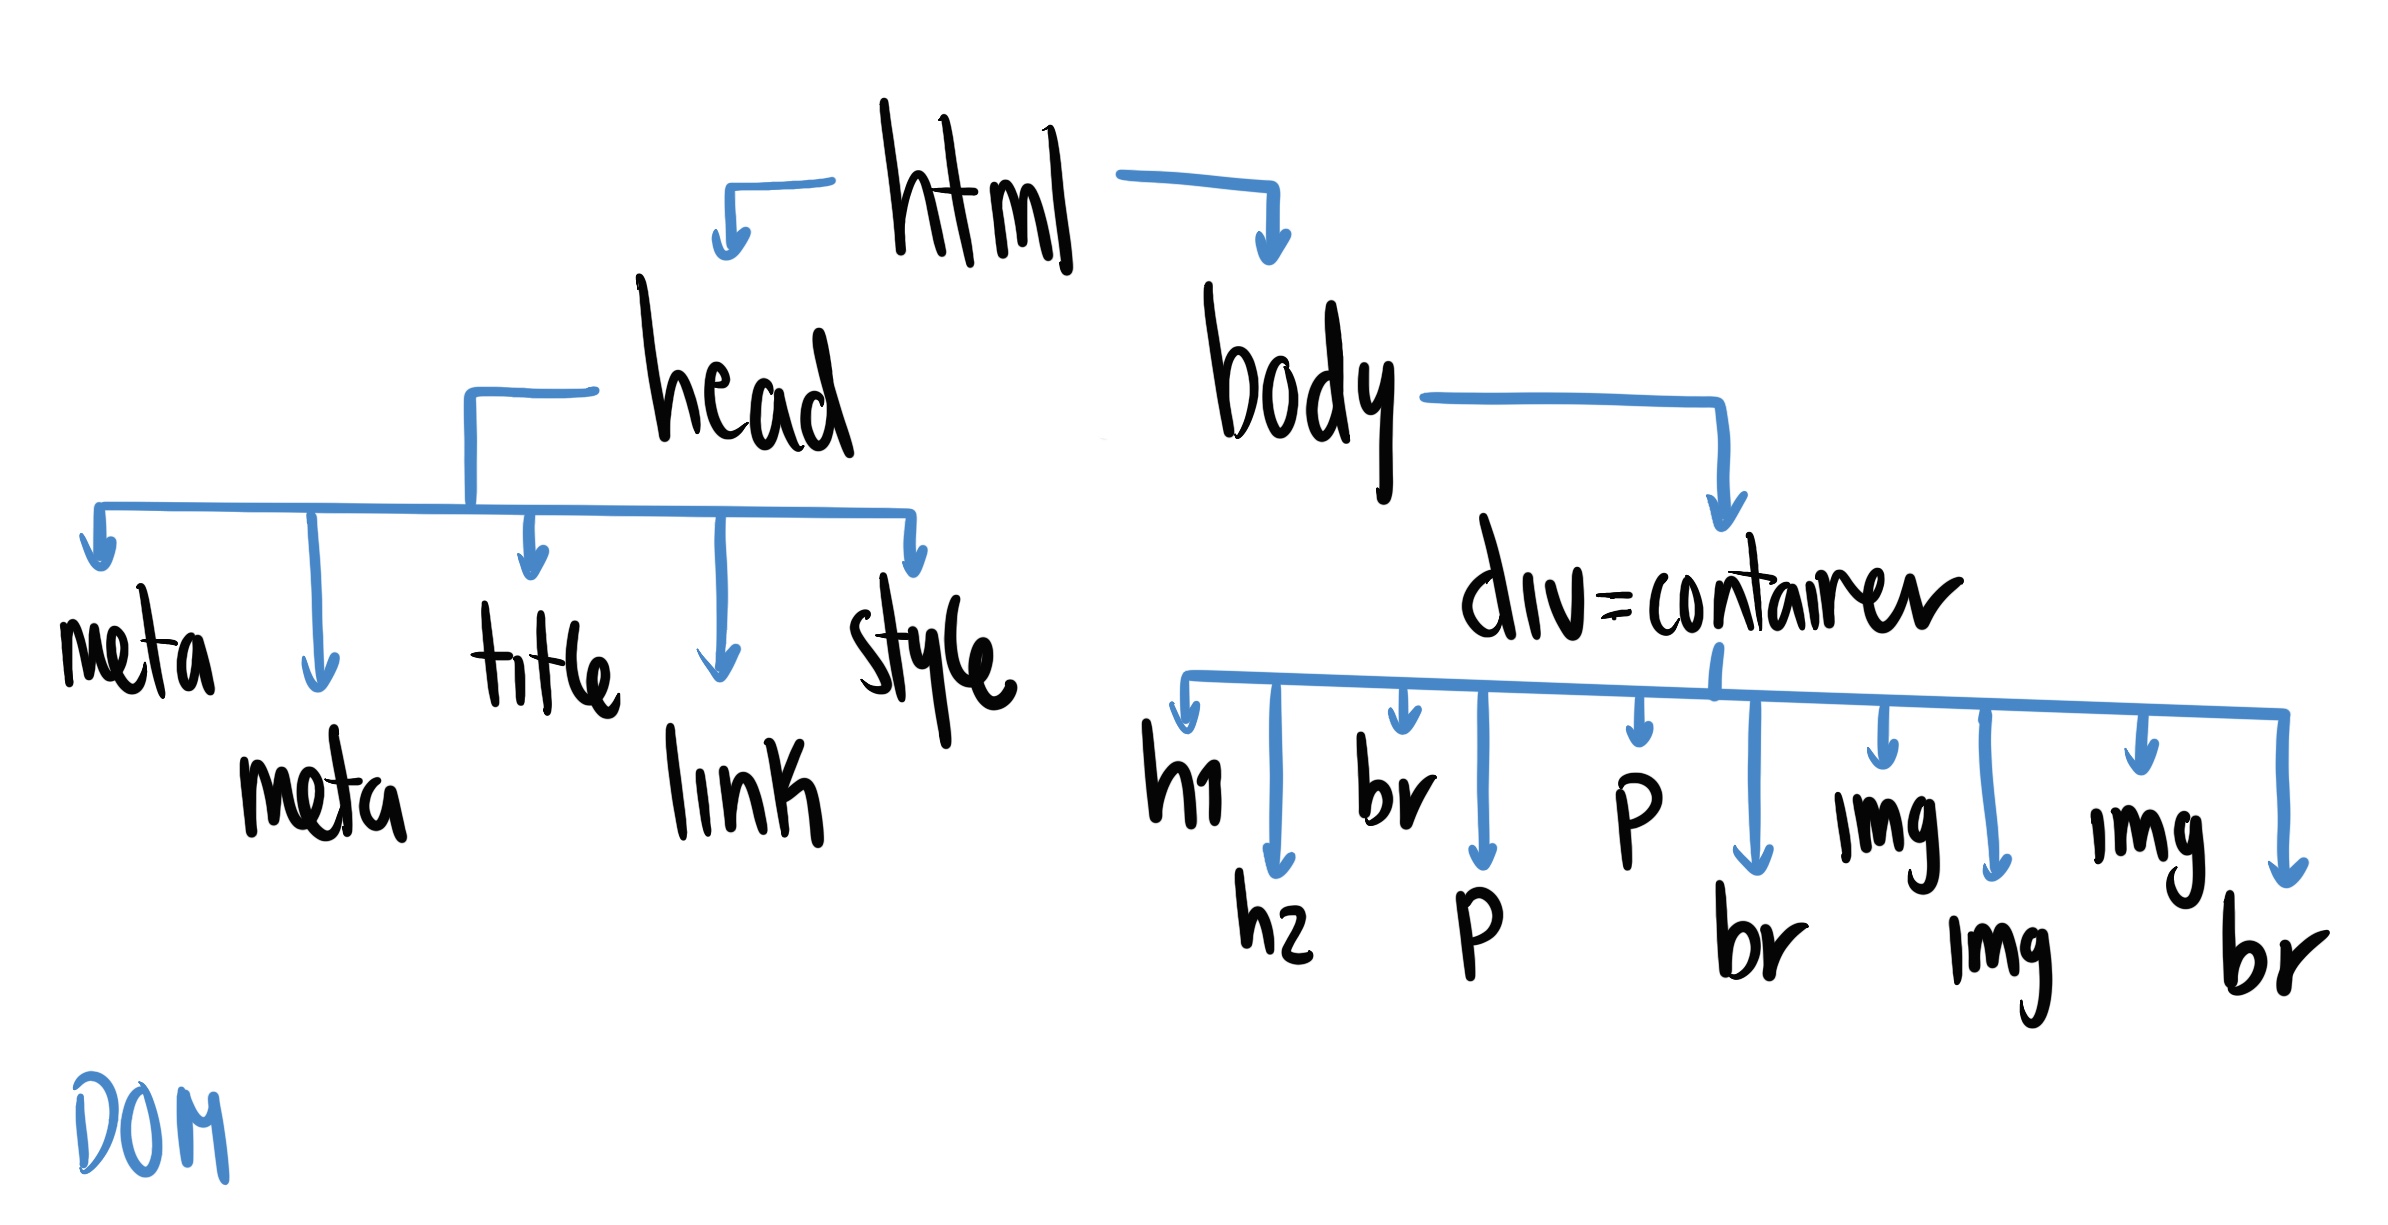 html
head
body
meta
meta
title
link
style
div=container
h1
h2
br
p
p
br
img
img
img
br
DOM